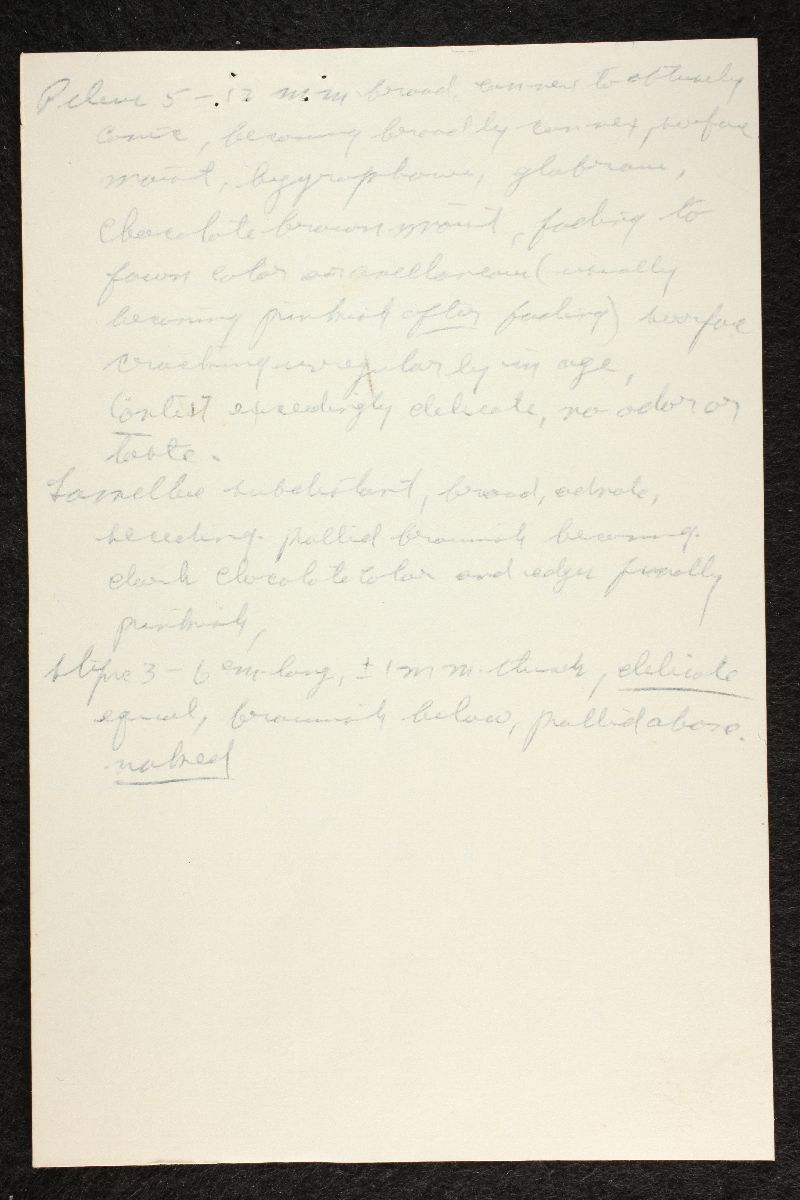 Pileus 5-12 mm broad, convex to obtusely
conic, becoming broadly convex, surface
moist, hygrophanous, glabrous,
chocolate brown moist, fading to
fawn color or avellaneous (usually
becoming pinkish after fading) surface
cracking irregularly in age,
Context exceedingly delicate, no odor or
taste.
Lamellae subdistant, broad, adnate,
seceding. pallid brownish becoming
dark chocolate color and edges finally
pinkish,
Stipe 3-6 cm long, ±1 mm thick, delicate
equal, brownish below, pallid above.
naked